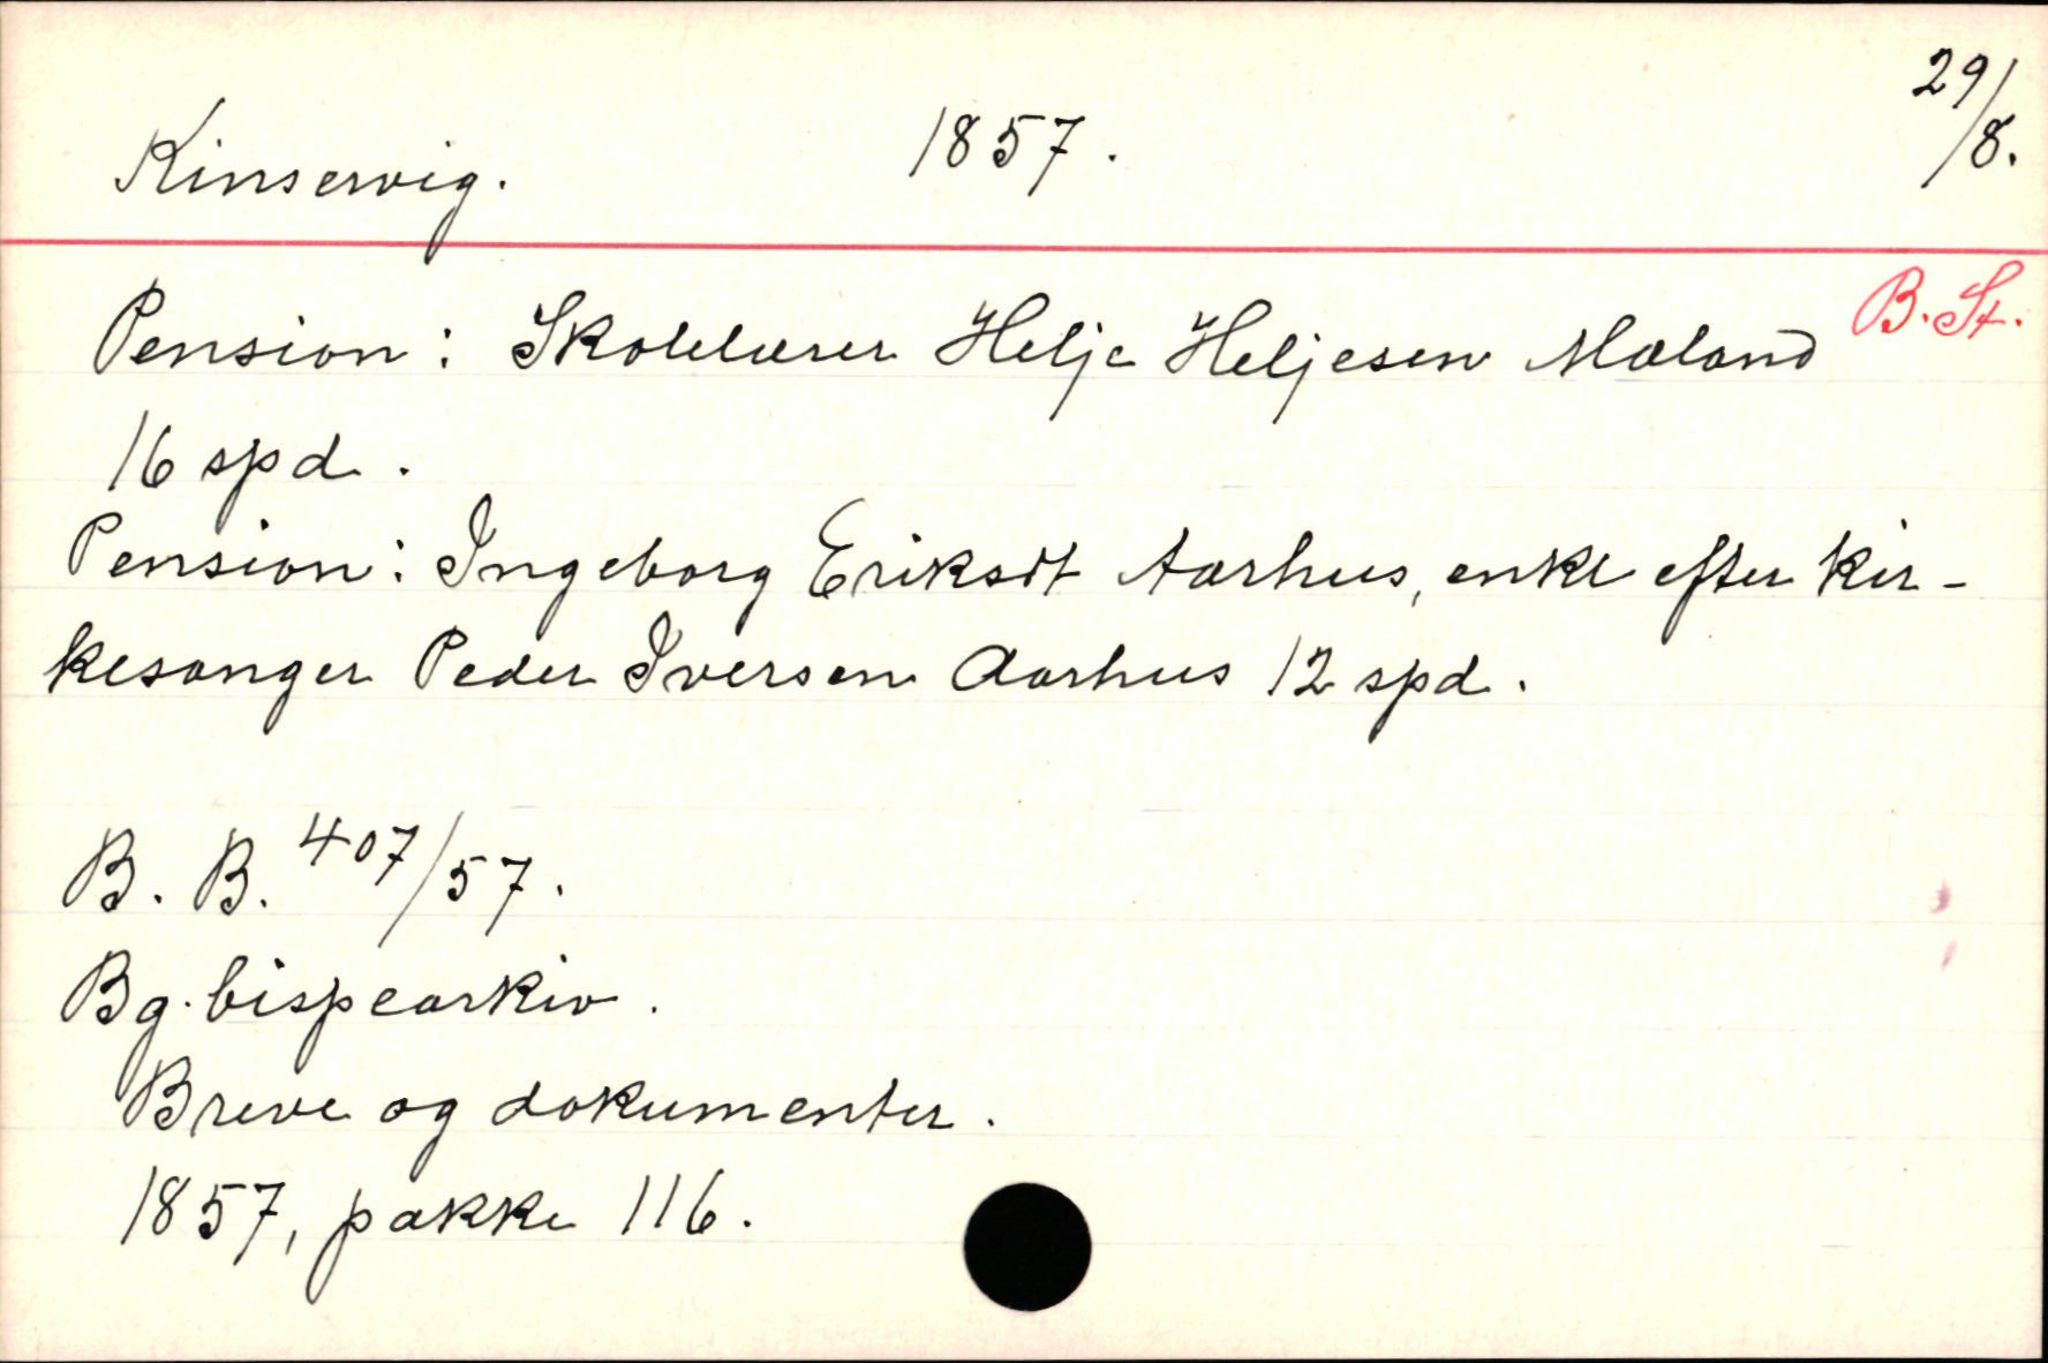 Kinservig. 1857. 29/8.
B. St.
Pension: Skolelærer Helje Heljesen Mæland
16 spd.
Pension: Ingeborg Eriksdt Aarhus, enke efter kir-
kesanger Peder Iversen Aarhus 12 spd.
B. B. 407/57.
Bg. bispearkiv.
Breve og dokumenter.
1857, pakke 116.